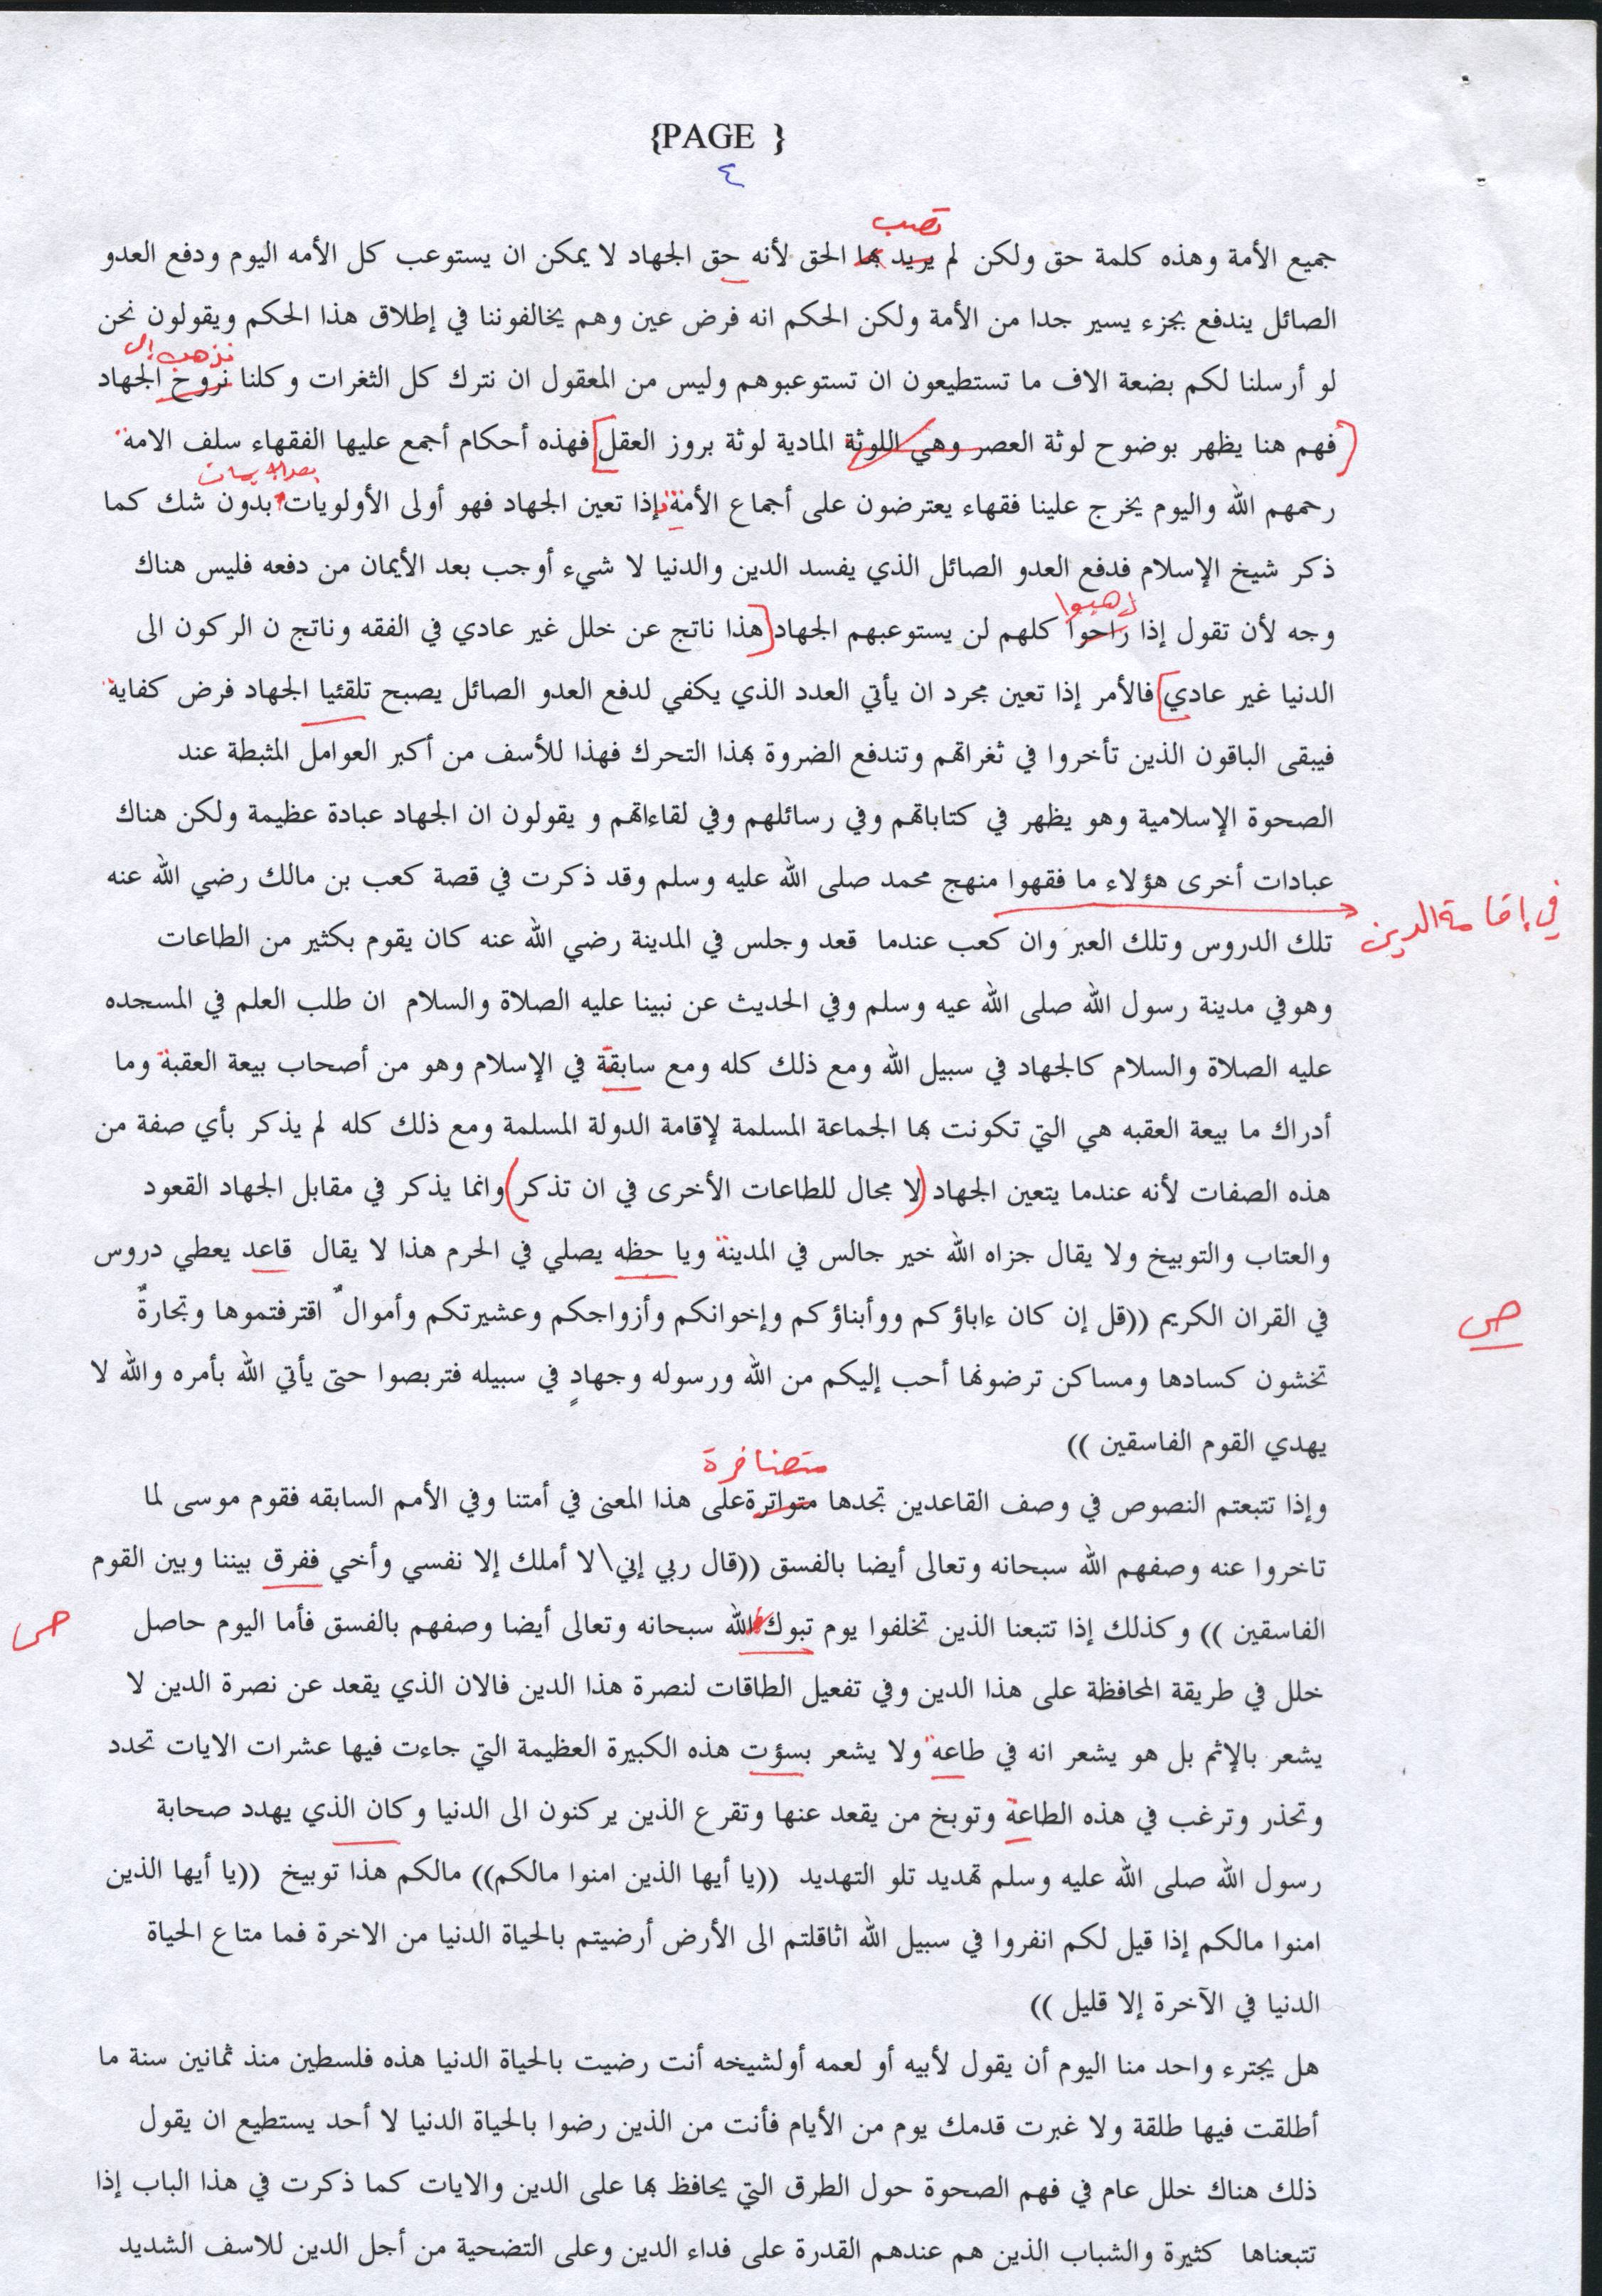 {PAGE }
٤
تصب
جميع الأمة وهذه كلمة حق ولكن لم يريد بها الحق لأنه حق الجهاد لا يمكن ان يستوعب كل الأمه اليوم ودفع العدو
الصائل يندفع بجزء يسير جدا من الأمة ولكن الحكم انه فرض عين وهم يخالفوننا في إطلاق هذا الحكم ويقولون نحن
نذهب إلى
لو أرسلنا لكم بضعة الاف ما تستطيعون ان تستوعبوهم وليس من المعقول ان نترك كل الثغرات وكلنا نروح الجهاد
[فهم هنا يظهر بوضوح لوثة العصر وهي اللوثة المادية لوثة بروز العقل] فهذه أحكام أجمع عليها الفقهاء سلف الامة
بعد الإيمان
رحمهم الله واليوم يخرج علينا فقهاء يعترضون على أجماع الأمة فإذا تعين الجهاد فهو أولى الأولويات بدون شك كما
ذكر شيخ الإسلام فدفع العدو الصائل الذي يفسد الدين والدنيا لا شيء أوجب بعد الأيمان من دفعه فليس هناك
ذهبوا
وجه لأن تقول إذا راحوا كلهم لن يستوعبهم الجهاد [هذا ناتج عن خلل غير عادي في الفقه وناتج ن الركون الى
الدنيا غير عادي] فالأمر إذا تعين مجرد ان يأتي العدد الذي يكفي لدفع العدو الصائل يصبح تلقئيا الجهاد فرض كفاية
فيبقى الباقون الذين تأخروا في ثغراتهم وتندفع الضروة بهذا التحرك فهذا للأسف من أكبر العوامل المثبطة عند
الصحوة الإسلامية وهو يظهر في كتاباتهم وفي رسائلهم وفي لقاءاتهم و يقولون ان الجهاد عبادة عظيمة ولكن هناك
عبادات أخرى هؤلاء ما فقهوا منهج محمد صلى الله عليه وسلم وقد ذكرت في قصة كعب بن مالك رضي الله عنه
في إقامة الدين
تلك الدروس وتلك العبر وان كعب عندما قعد وجلس في المدينة رضي الله عنه كان يقوم بكثير من الطاعات
وهوفي مدينة رسول الله صلى الله عيه وسلم وفي الحديث عن نبينا عليه الصلاة والسلام ان طلب العلم في المسجده
عليه الصلاة والسلام كالجهاد في سبيل الله ومع ذلك كله ومع سابقة في الإسلام وهو من أصحاب بيعة العقبة وما
أدراك ما بيعة العقبه هي التي تكونت بها الجماعة المسلمة لإقامة الدولة المسلمة ومع ذلك كله لم يذكر بأي صفة من
هذه الصفات لأنه عندما يتعين الجهاد (لا مجال للطاعات الأخرى في ان تذكر) وانما يذكر في مقابل الجهاد القعود
والعتاب والتوبيخ ولا يقال جزاه الله خير جالس في المدينة ويا حظه يصلي في الحرم هذا لا يقال قاعد يعطي دروس
في القران الكريم ((قل إن كان ءاباؤكم ووأبناؤكم وإخوانكم وأزواجكم وعشيرتكم وأموالٌ اقترفتموها وتجارةٌ
ص
تخشون كسادها ومساكن ترضونها أحب إليكم من الله ورسوله وجهادٍ في سبيله فتربصوا حتى يأتي الله بأمره والله لا
يهدي القوم الفاسقين ))
متضافرة
وإذا تتبعتم النصوص في وصف القاعدين تجدها متواترة على هذا المعنى في أمتنا وفي الأمم السابقه فقوم موسى لما
تاخروا عنه وصفهم الله سبحانه وتعالى أيضا بالفسق ((قال ربي إني\لا أملك إلا نفسي وأخي ففرق بيننا وبين القوم
الفاسقين )) وكذلك إذا تتبعنا الذين تخلفوا يوم تبوك الله سبحانه وتعالى أيضا وصفهم بالفسق فأما اليوم حاصل
ص
خلل في طريقة المحافظة على هذا الدين وفي تفعيل الطاقات لنصرة هذا الدين فالان الذي يقعد عن نصرة الدين لا
يشعر بالإثم بل هو يشعر انه في طاعة ولا يشعر بسؤت هذه الكبيرة العظيمة التي جاءت فيها عشرات الايات تحدد
وتحذر وترغب في هذه الطاعة وتوبخ من يقعد عنها وتقرع الذين يركنون الى الدنيا وكان الذي يهدد صحابة
رسول الله صلى الله عليه وسلم تهديد تلو التهديد ((يا أيها الذين امنوا مالكم)) مالكم هذا توبيخ ((يا أيها الذين
امنوا مالكم إذا قيل لكم انفروا في سبيل الله اثاقلتم الى الأرض أرضيتم بالحياة الدنيا من الاخرة فما متاع الحياة
الدنيا في الآخرة إلا قليل ))
هل يجترء واحد منا اليوم أن يقول لأبيه أو لعمه أولشيخه أنت رضيت بالحياة الدنيا هذه فلسطين منذ ثمانين سنة ما
أطلقت فيها طلقة ولا غبرت قدمك يوم من الأيام فأنت من الذين رضوا بالحياة الدنيا لا أحد يستطيع ان يقول
ذلك هناك خلل عام في فهم الصحوة حول الطرق التي يحافظ بها على الدين والايات كما ذكرت في هذا الباب إذا
تتبعناها كثيرة والشباب الذين هم عندهم القدرة على فداء الدين وعلى التضحية من أجل الدين للاسف الشديد